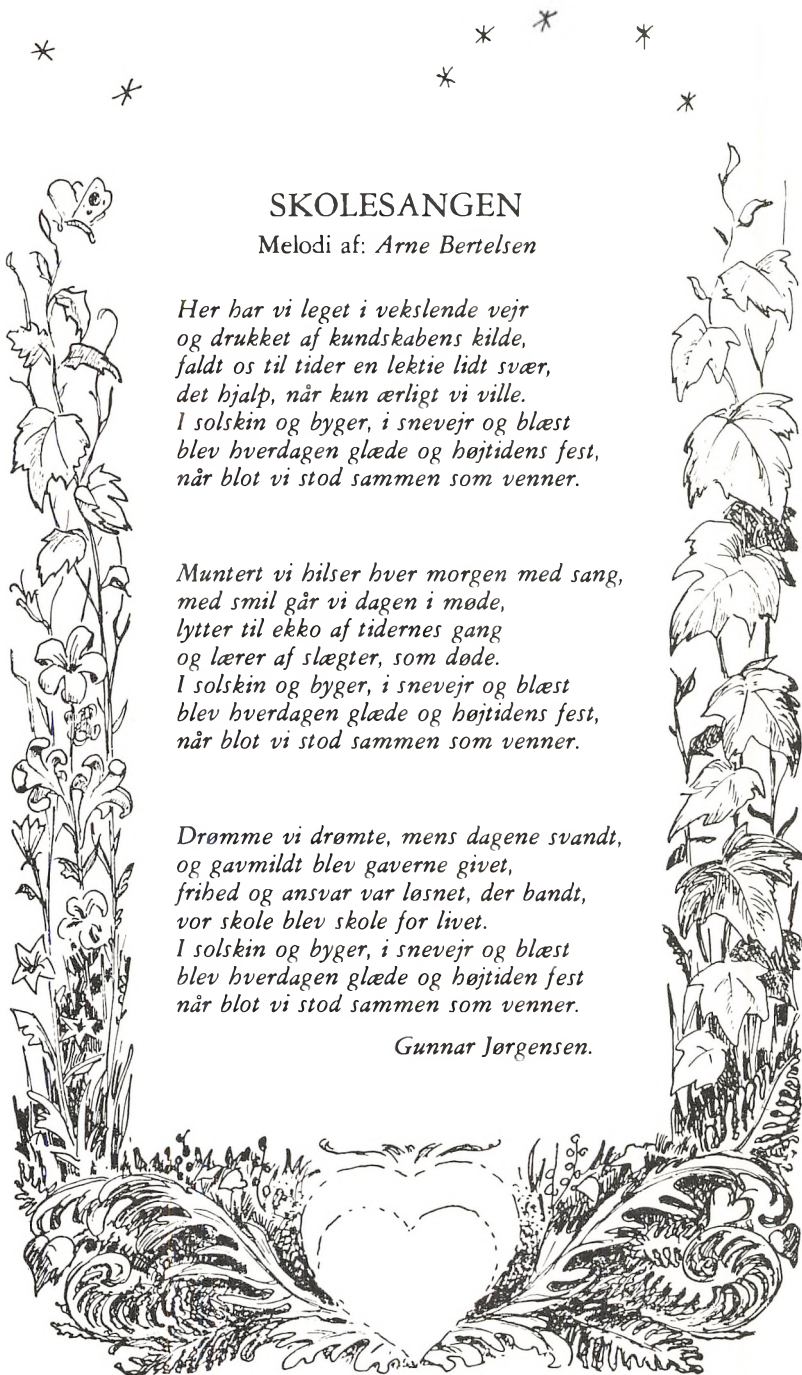 SKOLESANGEN
Melodi af: Arne Bertelsen
Her har vi leget i vekslende vejr
og drukket af kundskabens kilde,
faldt os til tider en lektie lidt svær,
det hjalp, når kun ærligt vi ville.
I solskin og byger, i snevejr og blæst
blev hverdagen glæde og højtidens fest,
når blot vi stod sammen som venner.
Muntert vi hilser hver morgen med sang,
med smil går vi dagen i møde,
lytter til ekko af tidernes gang
og lærer af slægter, som døde.
I solskin og byger, i snevejr og blæst
blev hverdagen glæde og højtidens fest,
når blot vi stod sammen som venner.
Drømme vi drømte, mens dagene svandt,
og gavmildt blev gaverne givet,
frihed og ansvar var løsnet, der bandt,
vor skole blev skole for livet.
I solskin og byger, i snevejr og blæst
blev hverdagen glæde og højtiden fest
når blot vi stod sammen som venner.
Gunnar Jørgensen.